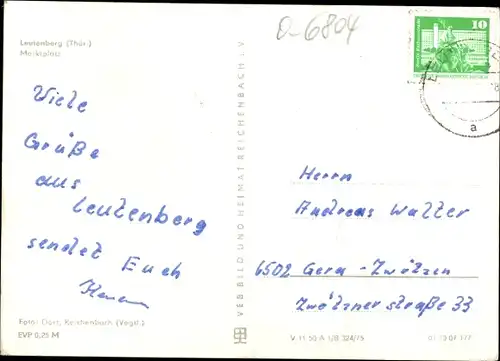 Leutenberg (Thür.)
Marktplatz
0-6804
10
a
Viele
Grüße
aus
Leutenberg
sendet Euch
Herrn
Andreas Walter
6502 Gera-Zwötzen
Zwötzner straße 33
VEB BILD UND HEIMAT REICHENBACH i.V.
Foto: Darr, Reichenbach (Vogtl.)
EVP 0,25 M
V 11 50 A 1/B 324/75